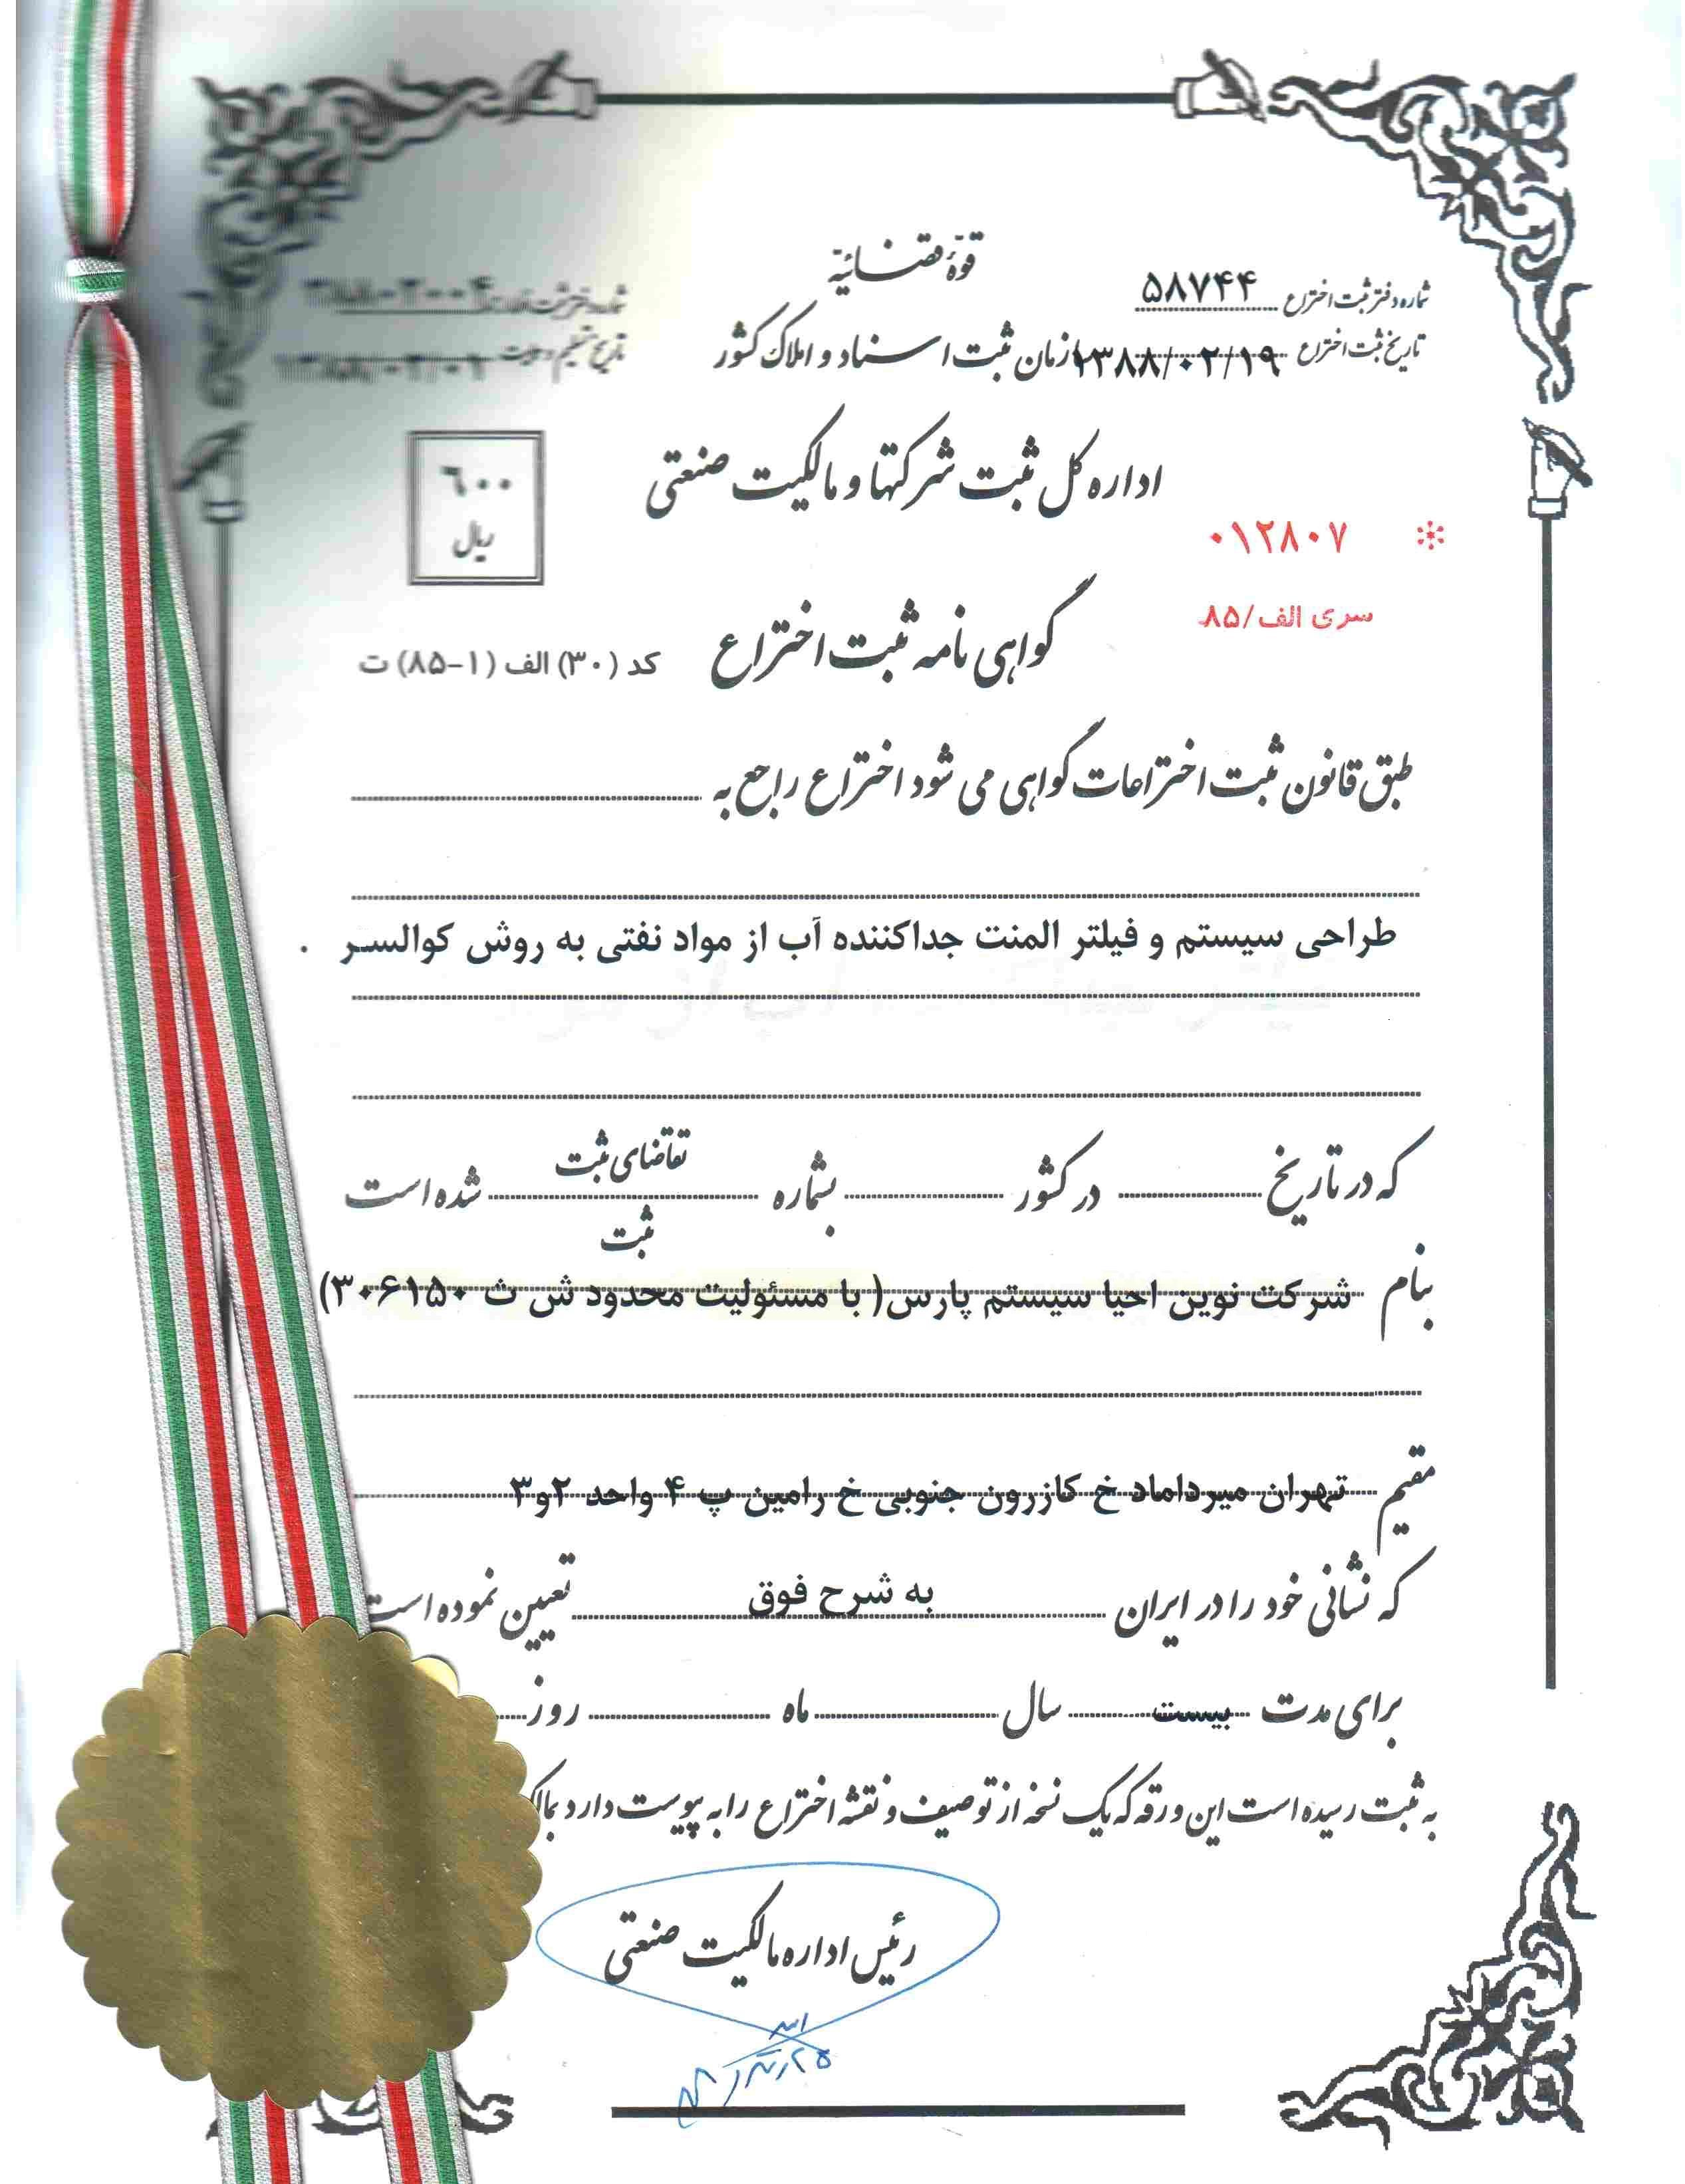 قوّهٔ قضائیّه
شماره دفتر ثبت اختراع ۵۸۷۴۴
تاریخ ثبت اختراع ۱۳۸۸/۰۲/۱۹
سازمان ثبت اسناد و املاک کشور
اداره کل ثبت شرکتها و مالکیت صنعتی
۶۰۰
ریال
۰۱۲۸۰۷
سری الف/۸۵
گواهی نامه ثبت اختراع
کد (۳۰) الف (۱-۸۵) ت
طبق قانون ثبت اختراعات گواهی می شود اختراع راجع به
طراحی سیستم و فیلتر المنت جداکننده آب از مواد نفتی به روش کوالسر .
که در تاریخ در کشور بشماره تقاضای ثبت شده است
ثبت
بنام شرکت نوین احیا سیستم پارس( با مسئولیت محدود ش ث ۳۰۶۱۵۰)
مقیم تهران میرداماد خ کازرون جنوبی خ رامین پ ۴ واحد ۲و۳
که نشانی خود را در ایران به شرح فوق تعیین نموده است
برای مدت بیست سال ماه روز
به ثبت رسیده است این ورقه که یک نسخه از توصیف و نقشه اختراع را به پیوست دارد
رئیس اداره مالکیت صنعتی